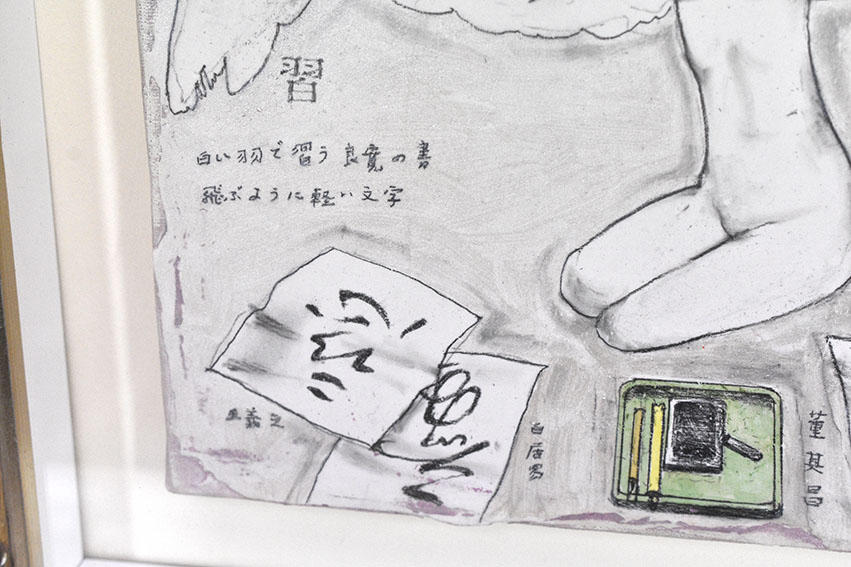 習
白い羽で習う良寛の書
飛ぶように軽い文字
王羲之
白居易
董其昌